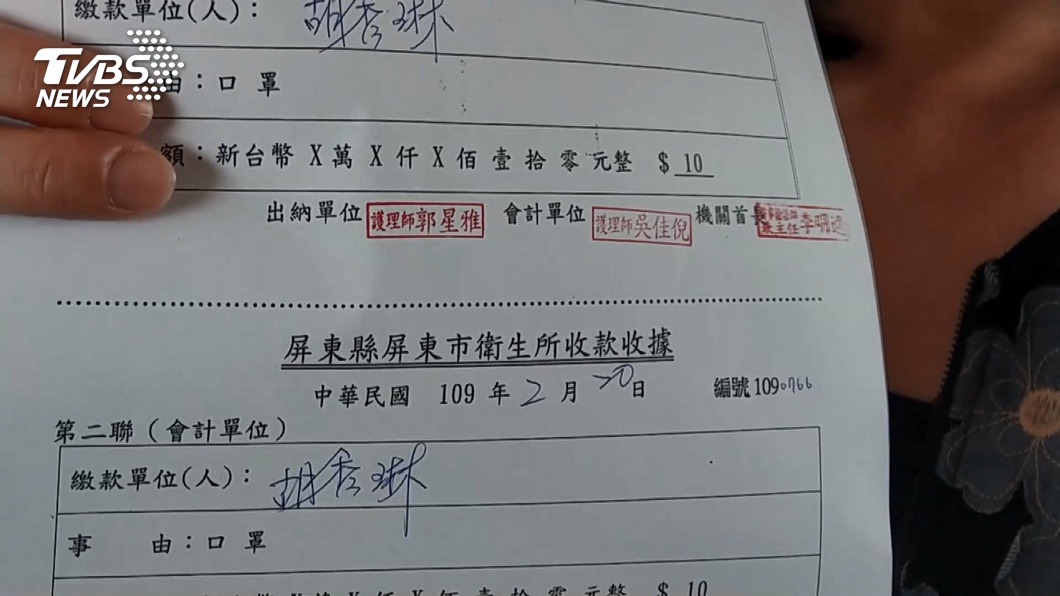 繳款單位(人)： 胡秀琳
TVBS
NEWS
由：口罩
額：新台幣 X 萬 X 仟 X 佰 壹 拾 零 元整 $ 10
出納單位 護理師郭星雅 會計單位 護理師吳佳倪 機關首長
屏東縣屏東市衛生所收款收據
中華民國 109 年 2 月 20 日 編號 1090766
第二聯（會計單位）
繳款單位(人)： 胡秀琳
事 由：口罩
幣 X 萬 X 仟 X 佰 壹 拾 零 元整 $ 10